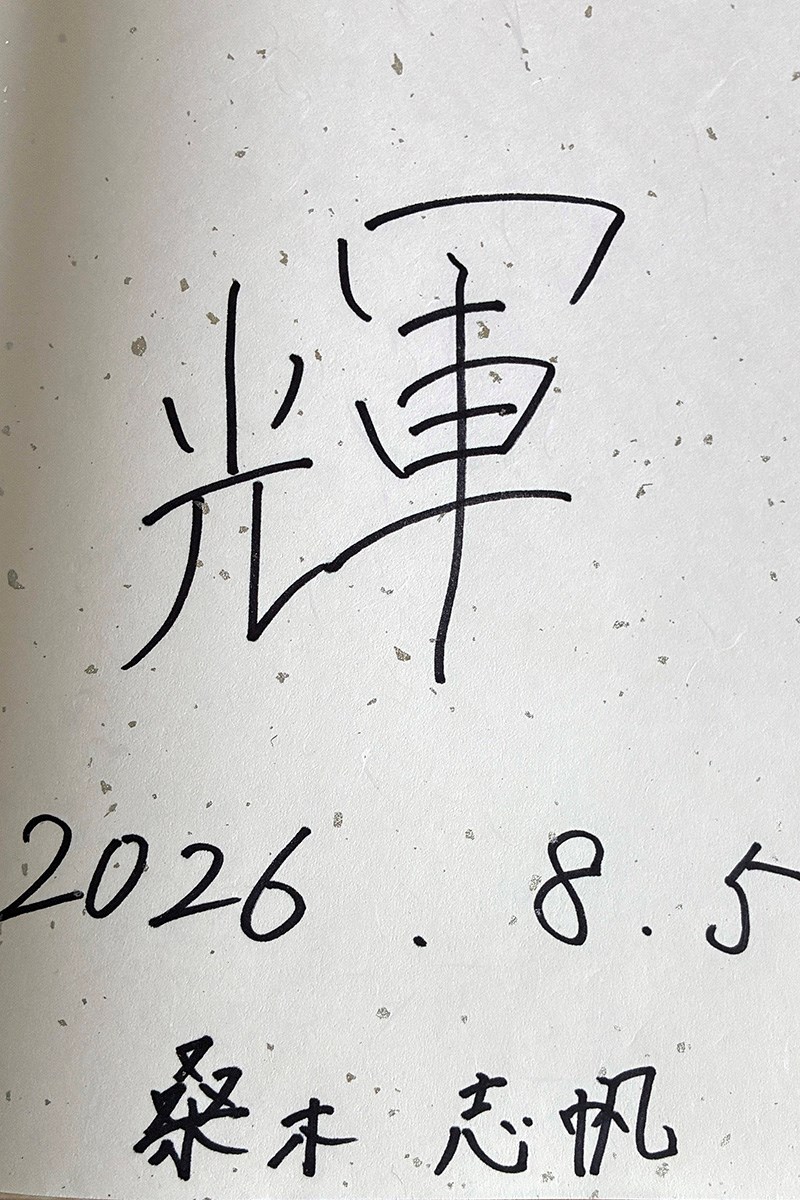 輝
2026.8.5
桑木 志帆